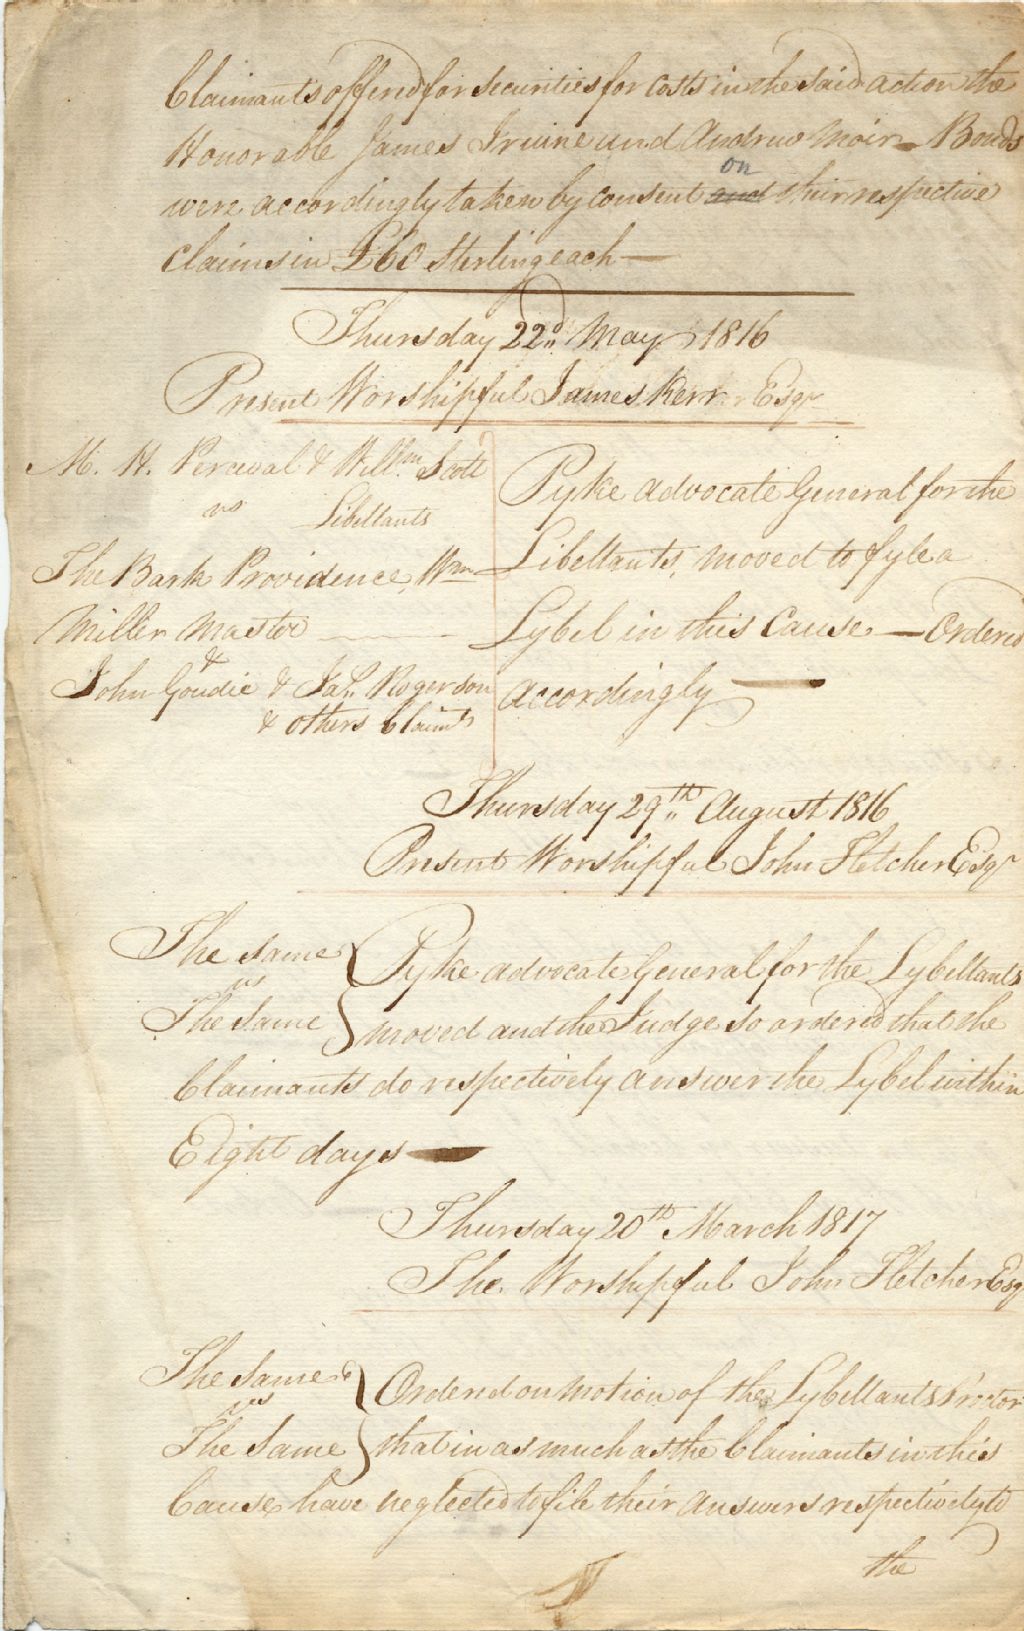 Claimants offered for securities for costs in the said action the
Honorable James Irvine and Andrew Moir — Bonds
on
were accordingly taken by consent and their respective
claims in £60 Sterling each —
Thursday 22d May 1816
Present Worshipful James Kerr Esqr
M. H. Percival & Willm Scott
vs Libellants
The Bark Providence, Wm
Miller Master
&
John Goudie & Jas. Rogerson
& others Claimts
Pyke Advocate General for the
Libellants, moved to fyle a
Lybel in this Cause — Ordered
accordingly —
Thursday 29th August 1816
Present Worshipful John Fletcher Esqr
The Same
vs
The Same
Pyke Advocate General for the Lybellants
moved and the Judge so ordered that the
Claimants do respectively answer the Lybel within
Eight days —
Thursday 20th March 1817
The Worshipful John Fletcher Esq
The Same
vs
The Same
Ordered on motion of the Lybellants Proctor
that in as much as the Claimants in this
Cause have neglected to file their answers respectively to
the